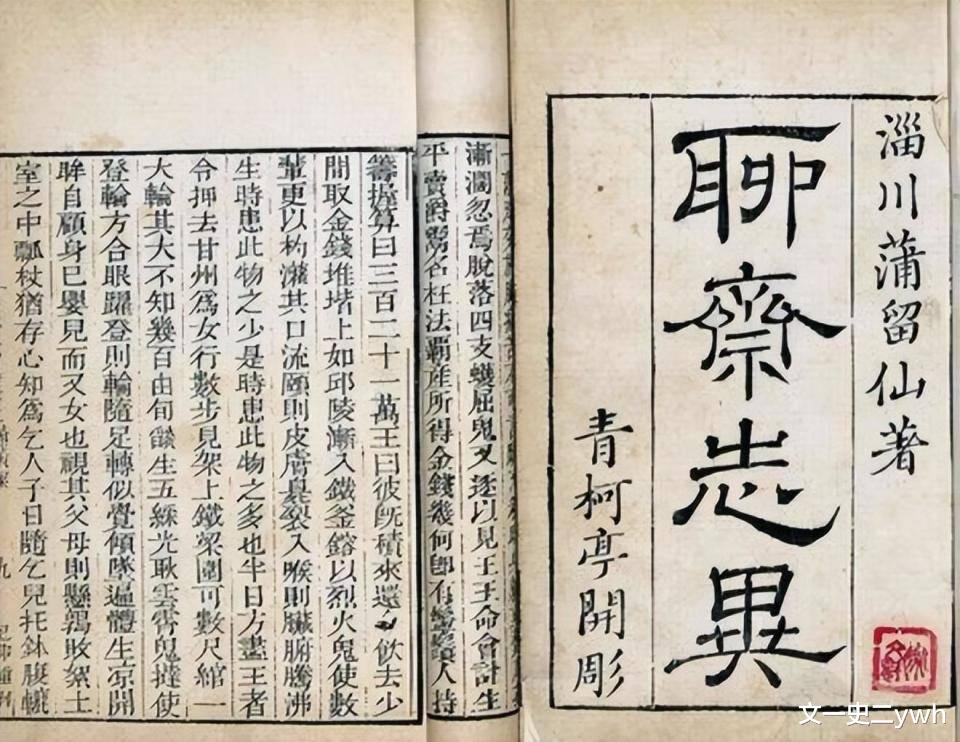 淄川蒲留仙著
聊齋志異
青柯亭開彫
漸瀾忽焉脫落四支蠖屈鬼又逐以見王王命會計生
平賣爵鬻名枉法霸產所得金錢幾何卽有人持
籌握算曰三百二十一萬王曰彼旣積來還飲去少
間取金錢堆堦上如邱陵漸入鐵釜鎔以烈火鬼使數
輩更以杓灌其口流頤則皮膚臭裂入喉則臟腑騰沸
生時患此物之少是時患此物之多也半日方盡王者
令押去甘州爲女行數步見架上鐵梁圍可數尺綰一
大輪其大不知幾百由旬燄生五綵光耿雲霄鬼撻使
登輪方合眼躍登則輪隨足轉似覺傾墜遍體生凉開
眸自顧身已嬰兒而又女也視其父母則懸鶉敗絮土
室之中瓢杖猶存心知爲乞人子日隨乞兒托鉢腹轆
九
文一史二ywh